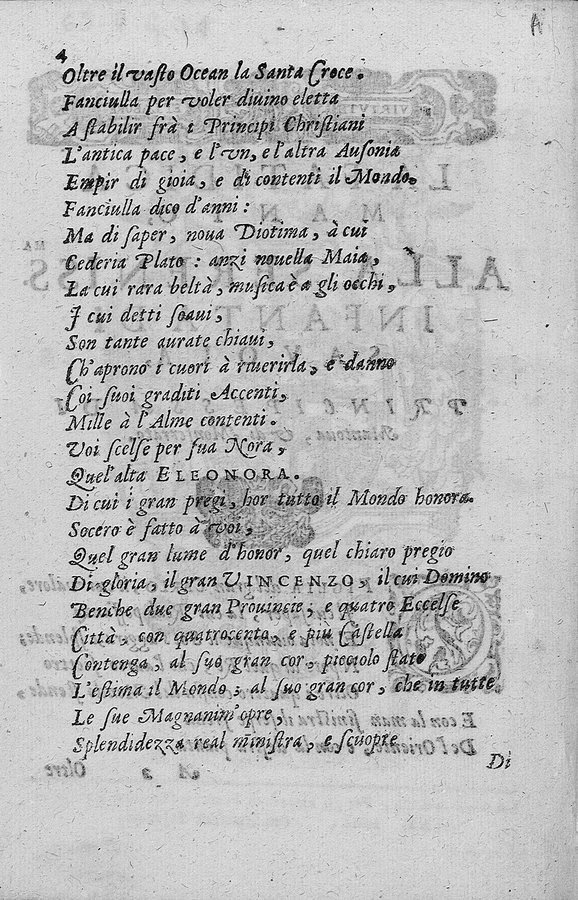 4
Oltre il vasto Ocean la Santa Croce.
Fanciulla per voler diuino eletta
A stabilir frà i Principi Christiani
L'antica pace, e l'vn, e l'altra Ausonia
Empir di gioia, e di contenti il Mondo.
Fanciulla dico d'anni:
Ma di saper, noua Diotima, à cui
Cederia Plato: anzi nouella Maia,
La cui rara beltà, musica è a gli occhi,
I cui detti soaui,
Son tante aurate chiaui,
Ch'aprono i cuori à riuerirla, e danno
Coi suoi graditi Accenti,
Mille à l'Alme contenti.
Voi scelse per sua Nora,
Quel'alta ELEONORA.
Di cui i gran pregi, hor tutto il Mondo honora.
Socero è fatto à voi,
Quel gran lume d'honor, quel chiaro pregio
Di gloria, il gran VINCENZO, il cui Domino
Benche due gran Prouincie, e quatro Eccelse
Città, con quatrocento, e più Castella
Contenga, al suo gran cor, picciolo stato
L'estima il Mondo; al suo gran cor, che in tutte
Le sue Magnanim'opre,
Splendidezza real ministra, e scuopre
Di